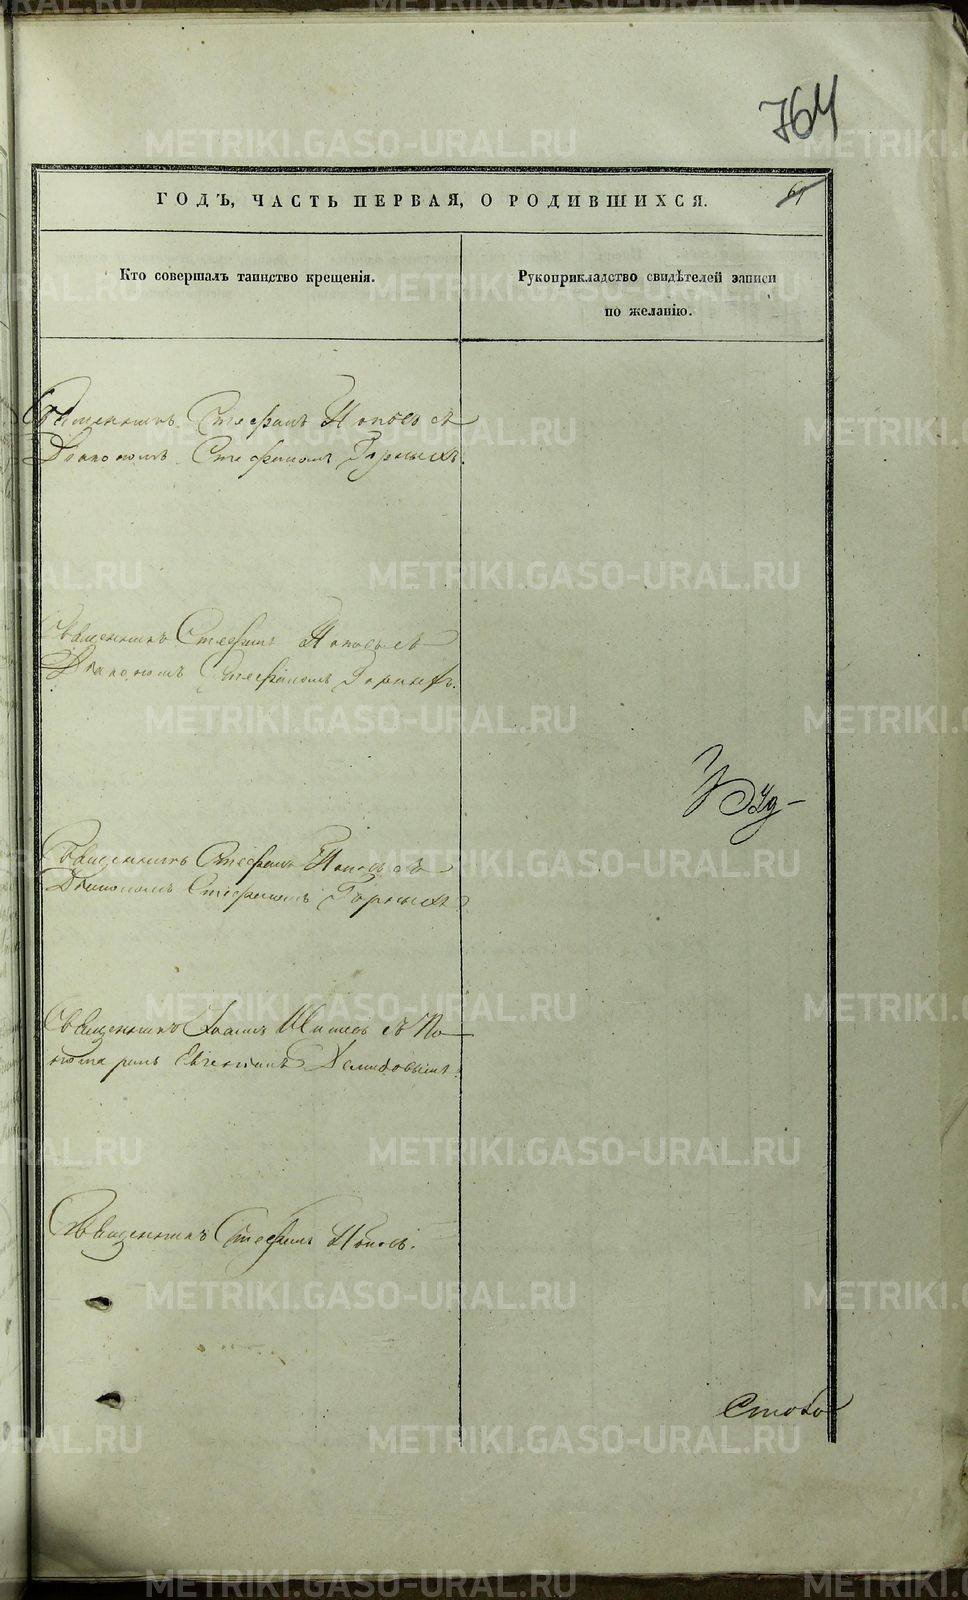 764
ГОДЪ, ЧАСТЬ ПЕРВАЯ, О РОДИВШИХСЯ.
Кто совершалъ таинство крещенія.
Рукоприкладство свидѣтелей записи
по желанію.
Священникъ Стефанъ Поповъ съ
Діакономъ Стефаномъ Горныхъ.
Священникъ Стефанъ Поповъ съ
Діакономъ Стефаномъ Горныхъ.
Священникъ Стефанъ Поповъ съ
Діакономъ Стефаномъ Горныхъ
Священникъ Іоаннъ съ По-
номаремъ Евгеніемъ
Священникъ Стефанъ Поповъ.
METRIKI.GASO-URAL.RU